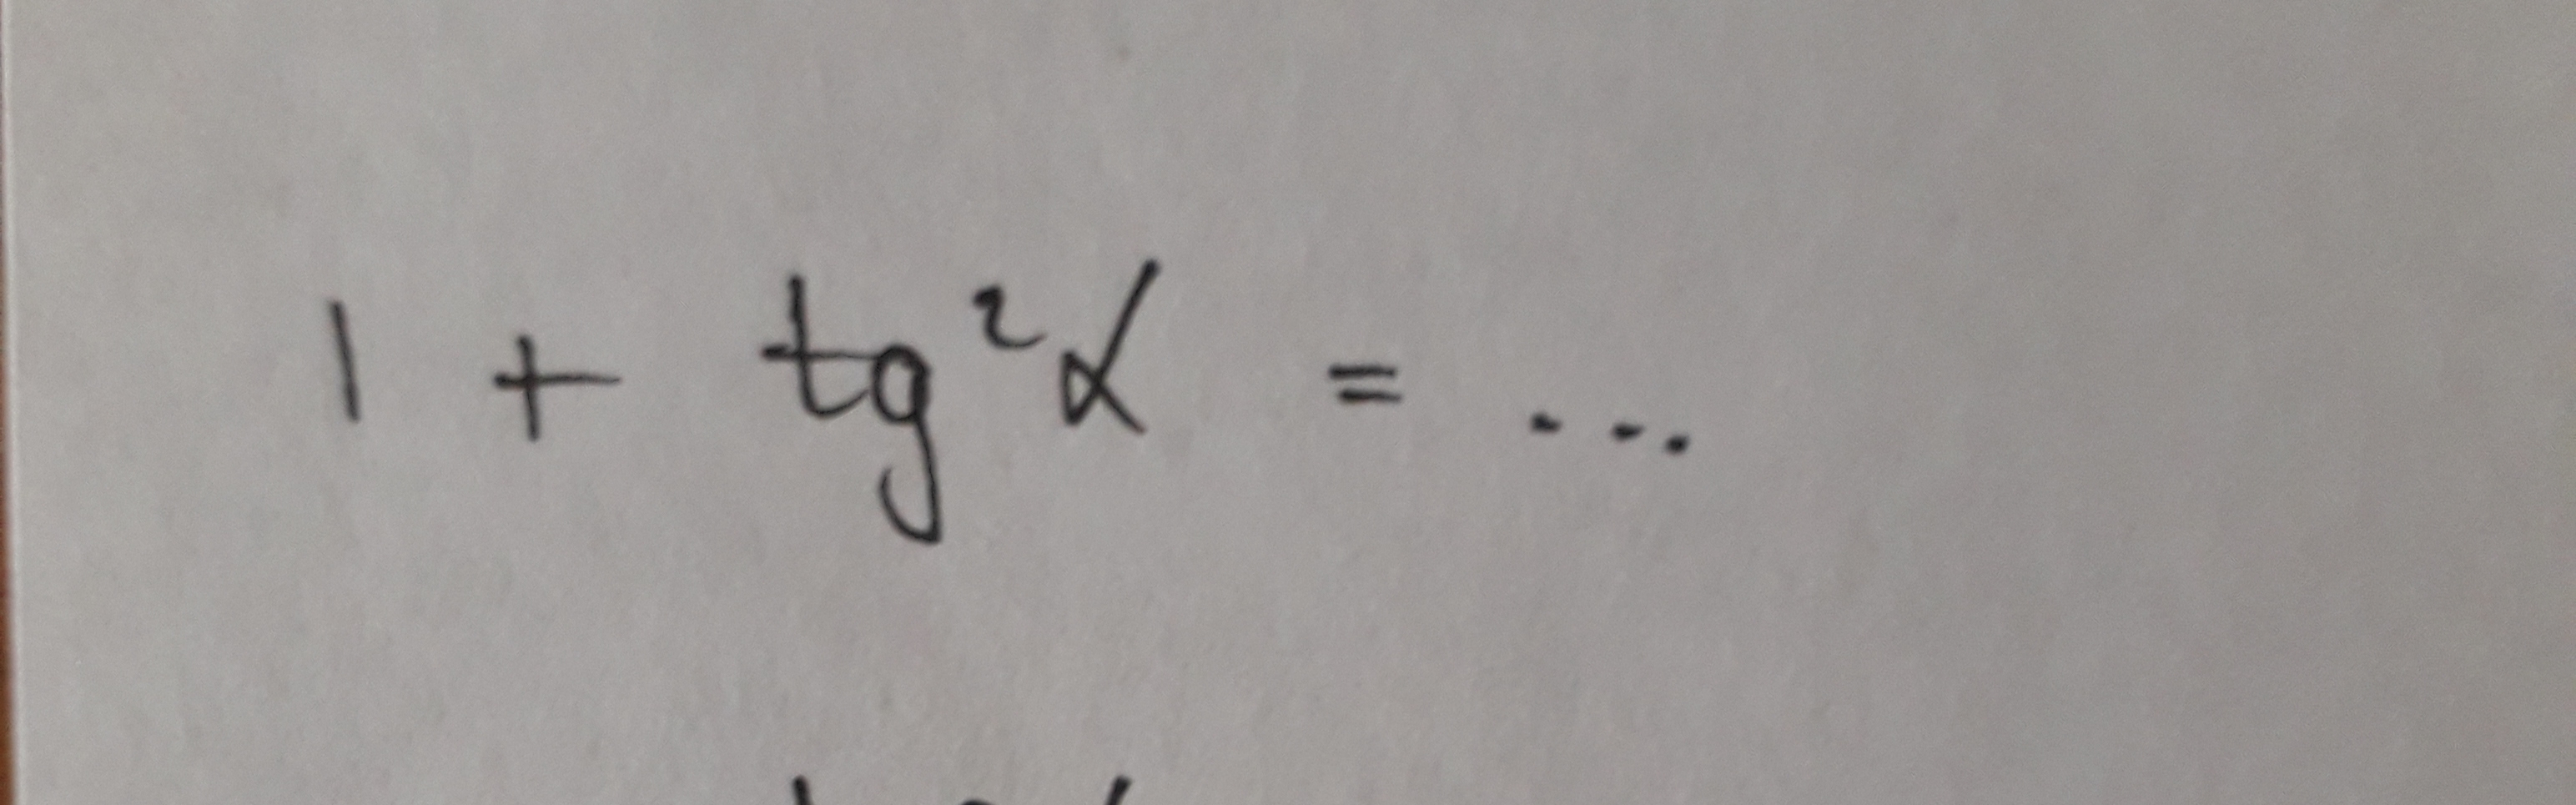 1 + tg²α = ...